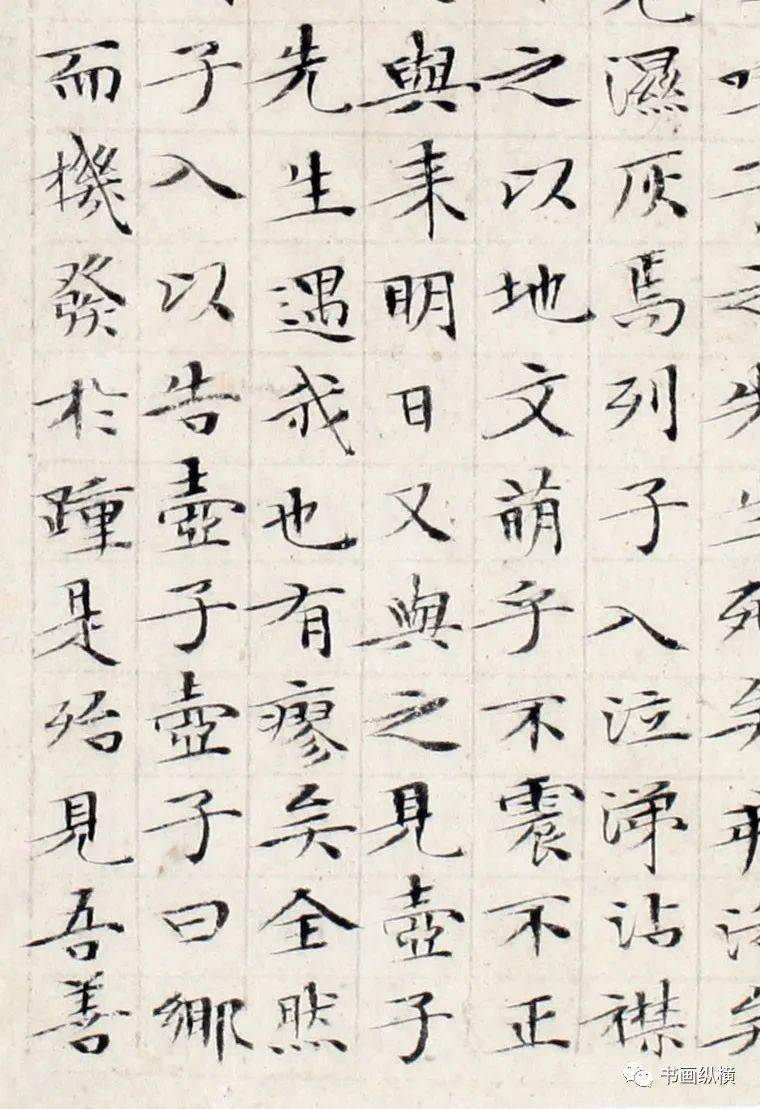 子之先生死矣弗活矣
濕灰焉列子入泣涕沾襟
之以地文萌乎不震不正
與来明日又與之見壺子
先生遇我也有瘳矣全然
子入以告壺子壺子曰鄉
而機發於踵是殆見吾善
书画纵横